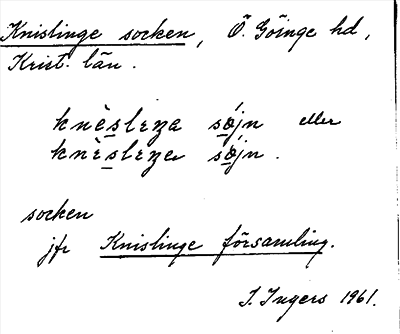 Knislinge socken, Ö. Göinge hd,
Krist. län.
knèslɪŋa søjn eller
knèslɪŋer søjn.
socken
jfr Knislinge församling.
I. Ingers 1961.